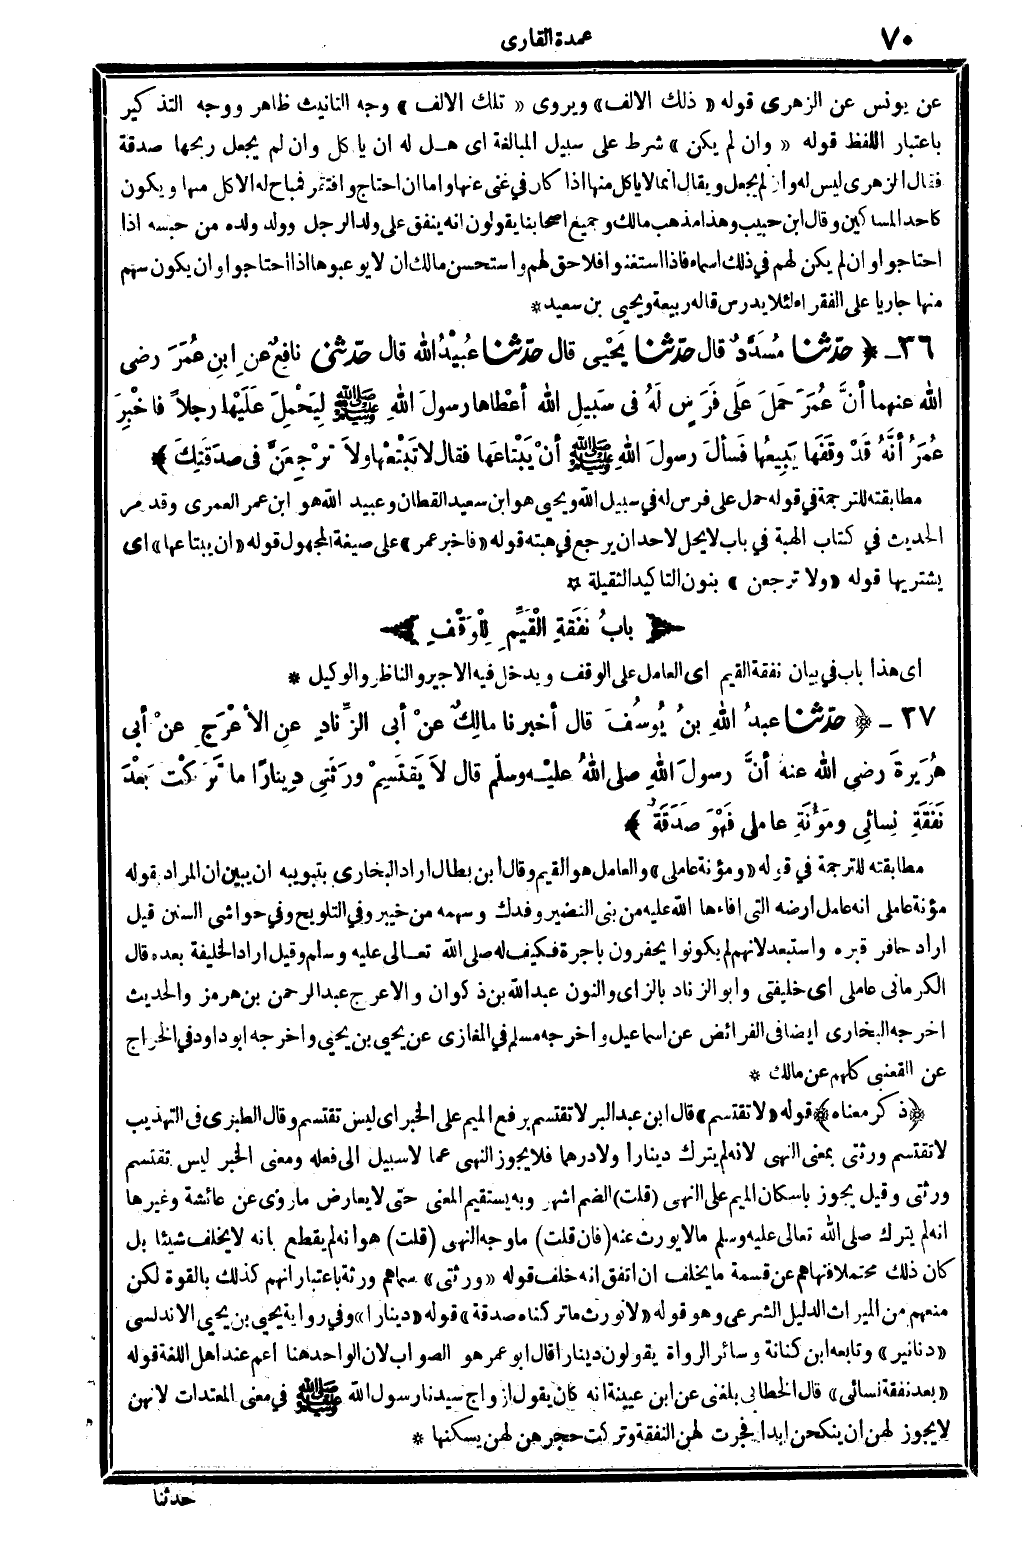 ٧٠
عمدة القارى
عن يونس عن الزهرى قوله «ذلك الالف» ويروى «تلك الالف» وجه التانيث ظاهر ووجه التذكير
باعتبار اللفظ قوله «وان لم يكن» شرط على سبيل المبالغة اى هل له ان ياكل وان لم يجعل ربحها صدقة
فقال الزهرى ليس له وان لم يجعل ويقال انما لا ياكل منها اذا كان في غنى عنها واما ان احتاج وافتقر فمباح له الاكل منها ويكون
كاحد المساكين وقال ابن حبيب وهذا مذهب مالك وجميع اصحابنا يقولون انه ينفق على ولد الرجل وولد ولده من حبسه اذا
احتاجوا وان لم يكن لهم في ذلك اسماء فاذا استغنوا فلا حق لهم واستحسن مالك ان لا يوعبوها اذا احتاجوا وان يكون سهم
منها جاريا على الفقراء لئلا يدرس قاله ربيعة ويحيى بن سعيد *
٣٦ـ ﴿ حدّثنا مُسَدَّدٌ قال حدّثنا يَحْيى قال حدّثنا عُبيْدُ الله قال حدّثني نافِعٌ عنِ ابنِ عُمَرَ رضى
الله عنهما أنَّ عُمَرَ حَمَلَ عَلَى فَرَسٍ لَهُ فى سَبِيلِ الله أعْطاها رسولَ اللهِ ﷺ لِيَحْمِلَ عَلَيْها رجلاً فاخْبِرَ
عُمَرُ أنَّهُ قَدْ وقَفَها يَبِيعُها فَسألَ رسولَ اللهِ ﷺ أنْ يَبْتاعَها فقال لا تَبْتَعْها ولاَ ترْجِعَنَّ فى صدَقَتِكَ ﴾
مطابقته للترجمة في قوله حمل على فرس له في سبيل الله ويحيى هو ابن سعيد القطان وعبيد الله هو ابن عمر العمرى وقد مر
الحديث في كتاب الهبة في باب لا يحل لاحد ان يرجع في هبته قوله «فاخبر عمر» على صيغة المجهول قوله «ان يبتاعها» اى
يشتريها قوله «ولا ترجعن» بنون التاكيد الثقيلة *
﴿ بابُ نَفَقَةِ الْقَيِّمِ لِلْوَقْفِ ﴾
اى هذا باب في بيان نفقة القيم اى العامل على الوقف ويدخل فيه الاجير والناظر والوكيل *
٣٧ ـ ﴿ حدّثنا عبدُ اللهِ بنُ يُوسُفَ قال أخبرنا مالِكٌ عنْ أبى الزِّنادِ عنِ الأعْرَجِ عنْ أبى
هُرَيرةَ رضى الله عنه أنَّ رسولَ اللهِ صلى اللهُ عليْه وسلّم قال لاَ يَقتَسِمْ ورَثَتِى دِينارًا ما تَرَكْتُ بَعْدَ
نَفَقَةِ نِسائِي ومَؤُنَةِ عامِلى فَهْوَ صَدَقَةٌ ﴾
مطابقته للترجمة في قوله «ومؤنة عاملى» والعامل هو القيم وقال ابن بطال اراد البخارى بتبويبه ان يبين ان المراد بقوله
مؤنة عاملى انه عامل ارضه التى افاءها الله عليه من بنى النضير وفدك وسهمه من خيبر وفي التلويح وفي حواشى السنن قيل
اراد حافر قبره واستبعد لانهم لم يكونوا يحفرون باجرة فكيف له صلى الله تعالى عليه وسلم وقيل اراد الخليفة بعده قال
الكرمانى عاملى اى خليفتى وابو الزناد بالزاى والنون عبد الله بن ذكوان والاعرج عبد الرحمن بن هرمز والحديث
اخرجه البخارى ايضا فى الفرائض عن اسماعيل واخرجه مسلم في المغازى عن يحيى بن يحيى واخرجه ابو داود في الخراج
عن القعنبى كلهم عن مالك *
﴿ ذكر معناه ﴾ قوله «لا تقتسم» قال ابن عبد البر لا تقتسم برفع الميم على الخبر اى ليس تقتسم وقال الطبرى فى التهذيب
لا تقتسم ورثتى بمعنى النهى لانه لم يترك دينارا ولا درهما فلا يجوز النهى عما لا سبيل الى فعله ومعنى الخبر ليس تقتسم
ورثتى وقيل يجوز باسكان الميم على النهى (قلت) الضم اشهر وبه يستقيم المعنى حتى لا يعارض ما روى عن عائشة وغيرها
انه لم يترك صلى الله تعالى عليه وسلم مالا يورث عنه (فان قلت) ما وجه النهى (قلت) هو انه لم يقطع بانه لا يخلف شيئا بل
كان ذلك محتملا فنهاهم عن قسمة ما يخلف ان اتفق انه خلف قوله «ورثتى» سماهم ورثة باعتبار انهم كذلك بالقوة لكن
منعهم من الميراث الدليل الشرعى وهو قوله «لا نورث ما تركناه صدقة» قوله «دينارا» وفي رواية يحيى بن يحيى الاندلسى
«دنانير» وتابعه ابن كنانة وسائر الرواة يقولون دينارا قال ابو عمر هو الصواب لان الواحد هنا اعم عند اهل اللغة قوله
«بعد نفقة نسائى» قال الخطابى بلغنى عن ابن عيينة انه كان يقول ازواج سيدنا رسول الله ﷺ في معنى المعتدات لانهن
لا يجوز لهن ان ينكحن ابدا فجرت لهن النفقة وتركت حجرهن لهن يسكنها *
حدثنا